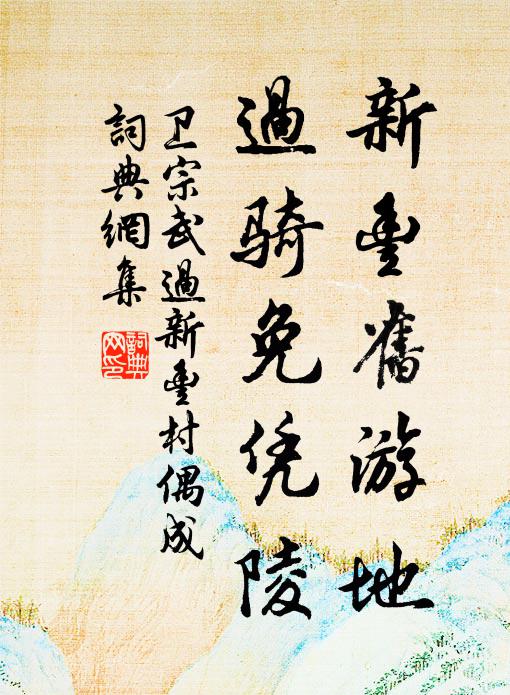 新豐舊游地
過骑免凭陵
卫宗武過新豐村偶成
詞典網集
詞典
网印